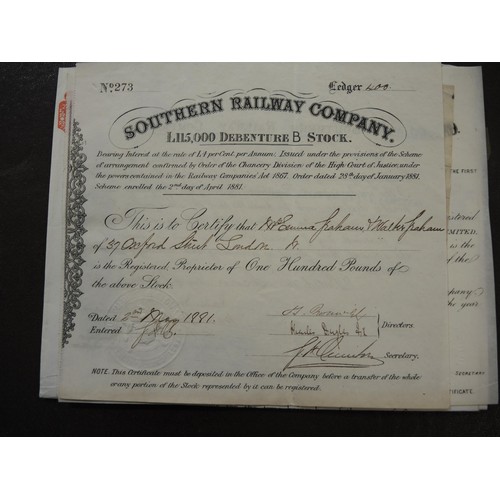 No. 273
Ledger 400
SOUTHERN RAILWAY COMPANY.
£115,000 DEBENTURE B STOCK.
Bearing Interest at the rate of 1/4 per Cent. per Annum: Issued under the provisions of the Scheme
of arrangement confirmed by Order of the Chancery Division of the High Court of Justice, under
the powers contained in the Railway Companies' Act 1867. Order dated 28th day of January 1881.
Scheme enrolled the 2nd day of April 1881.
This is to Certify that Emma Graham & Walter Graham
of 37 Oxford Street London W
is the Registered Proprietor of One Hundred Pounds of
the above Stock.
Dated May 1881.
Entered
Directors.
Secretary.
NOTE. This Certificate must be deposited in the Office of the Company before a transfer of the whole
or any portion of the Stock represented by it can be registered.
THE FIRST
LIMITED.
is the
of the
the year
SECRETARY
CERTIFICATE.